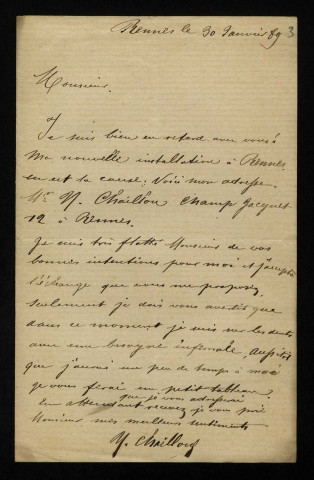 Rennes le 30 Janvier 893
Monsieur.
Je suis bien en retard avec vous!
Ma nouvelle installation à Rennes
en est la cause: Voici mon adresse
Mr N. Chaillou Champ Jacquet
12 à Rennes.
Je suis très flatté Monsieur de vos
bonnes intentions pour moi et j'accepte
l'échange que vous me proposez,
seulement je dois vous avertir que
dans ce moment je suis sur les dents
avec une besogne infernale. Aussitôt
que j'aurai un peu de temps à moi
je vous ferai un petit tableau
que je vous adresserai
En attendant recevez je vous prie
Monsieur mes meilleurs sentiments
N. Chaillou